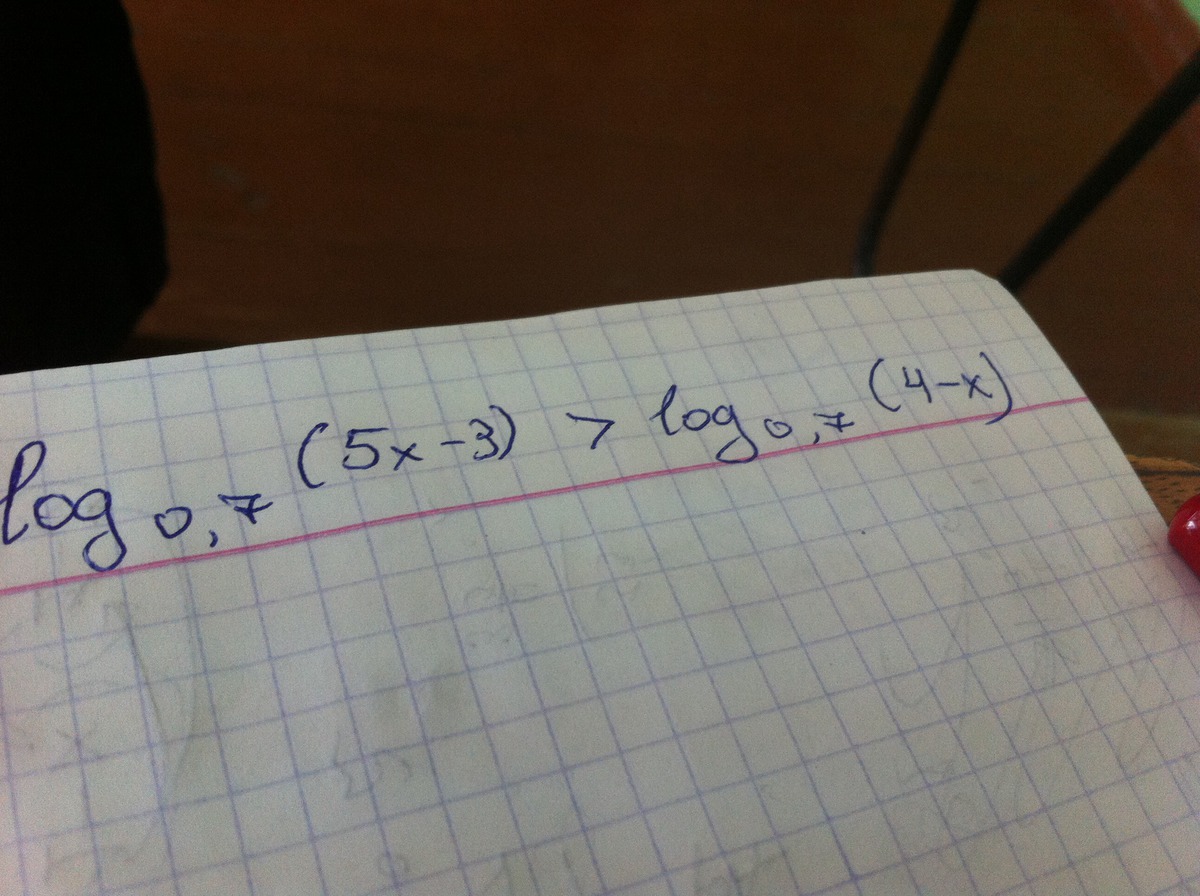 log 0,7 (5x-3) > log 0,7 (4-x)